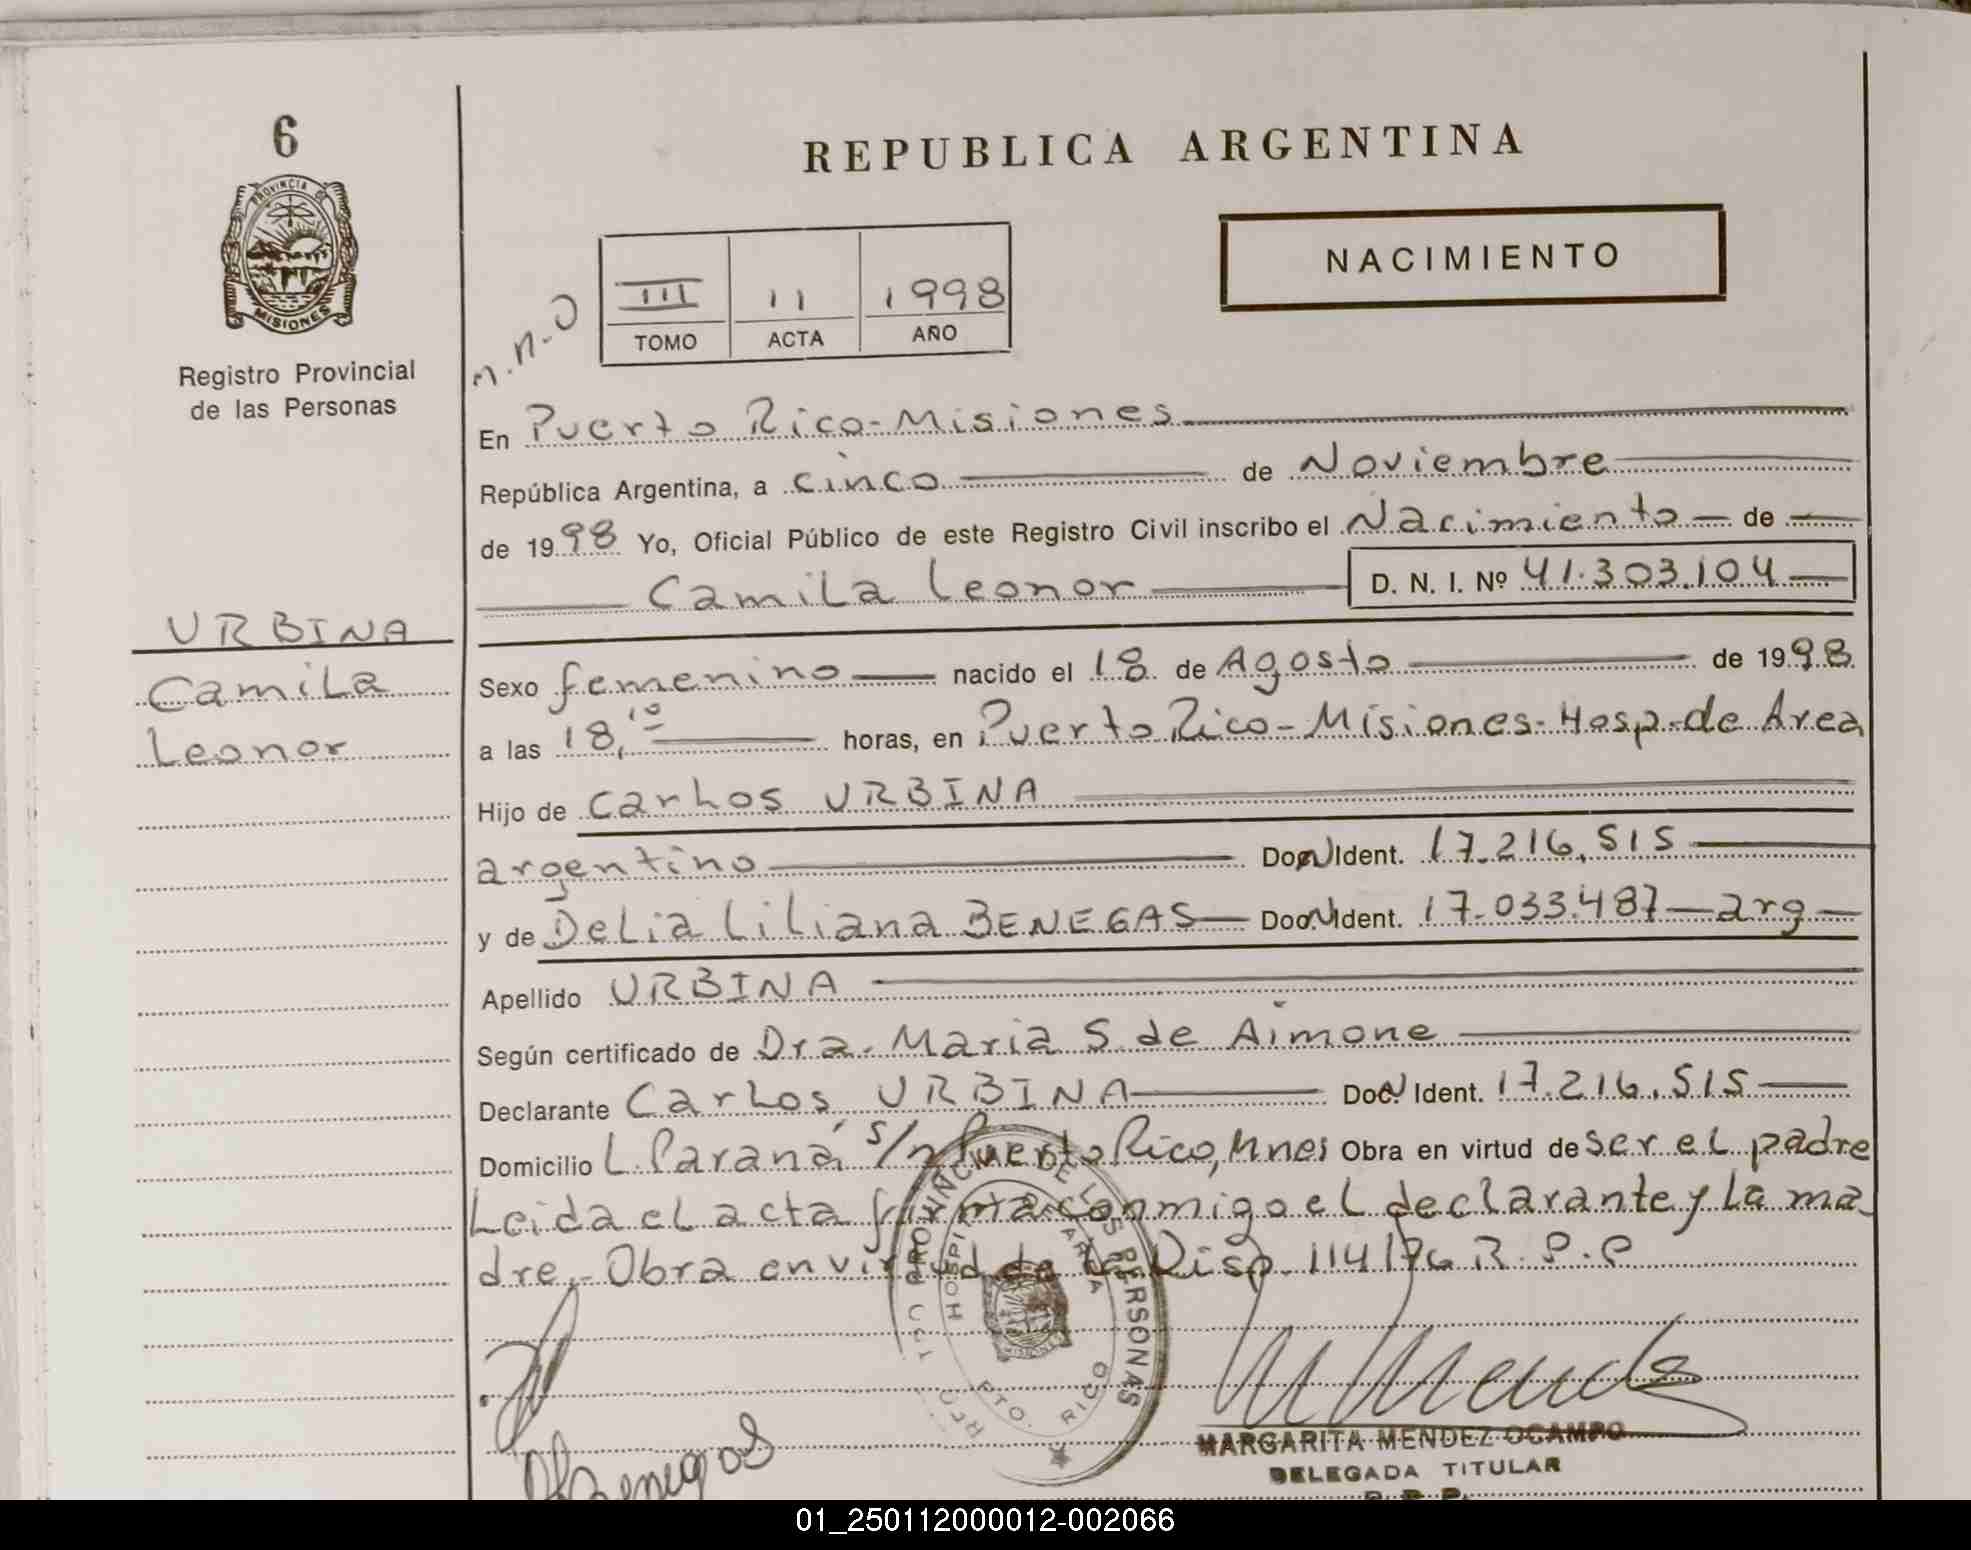 6
REPUBLICA ARGENTINA
PROVINCIA DE
MISIONES
NACIMIENTO
III 11 1998
TOMO ACTA AÑO
Registro Provincial
de las Personas
En Puerto Rico-Misiones
República Argentina, a cinco de Noviembre
de 1998 Yo, Oficial Público de este Registro Civil inscribo el Nacimiento de
Camila Leonor D. N. I. Nº 41.303.104
URBINA
Camila
Leonor
Sexo femenino nacido el 18 de Agosto de 1998
a las 18,10 horas, en Puerto Rico-Misiones-Hosp.de Area
Hijo de Carlos URBINA
argentino Ident. 17.216.515
y de Delia Liliana BENEGAS Ident. 17.033.487 - arg
Apellido URBINA
Según certificado de Dra. Maria S. de Aimone
Declarante Carlos URBINA Ident. 17.216.515
Domicilio L. Paraná s/n Puerto Rico, Mnes Obra en virtud de ser el padre
Leida el acta firma conmigo el declarante y la ma
dre.- Obra en virtud de la Disp. 114/76 R.P.P
HOSPITAL DE AREA
PTO. RICO
DE LAS PERSONAS
Benegas
M Mendez
MARGARITA MENDEZ OCAMPO
DELEGADA TITULAR
01_250112000012-002066